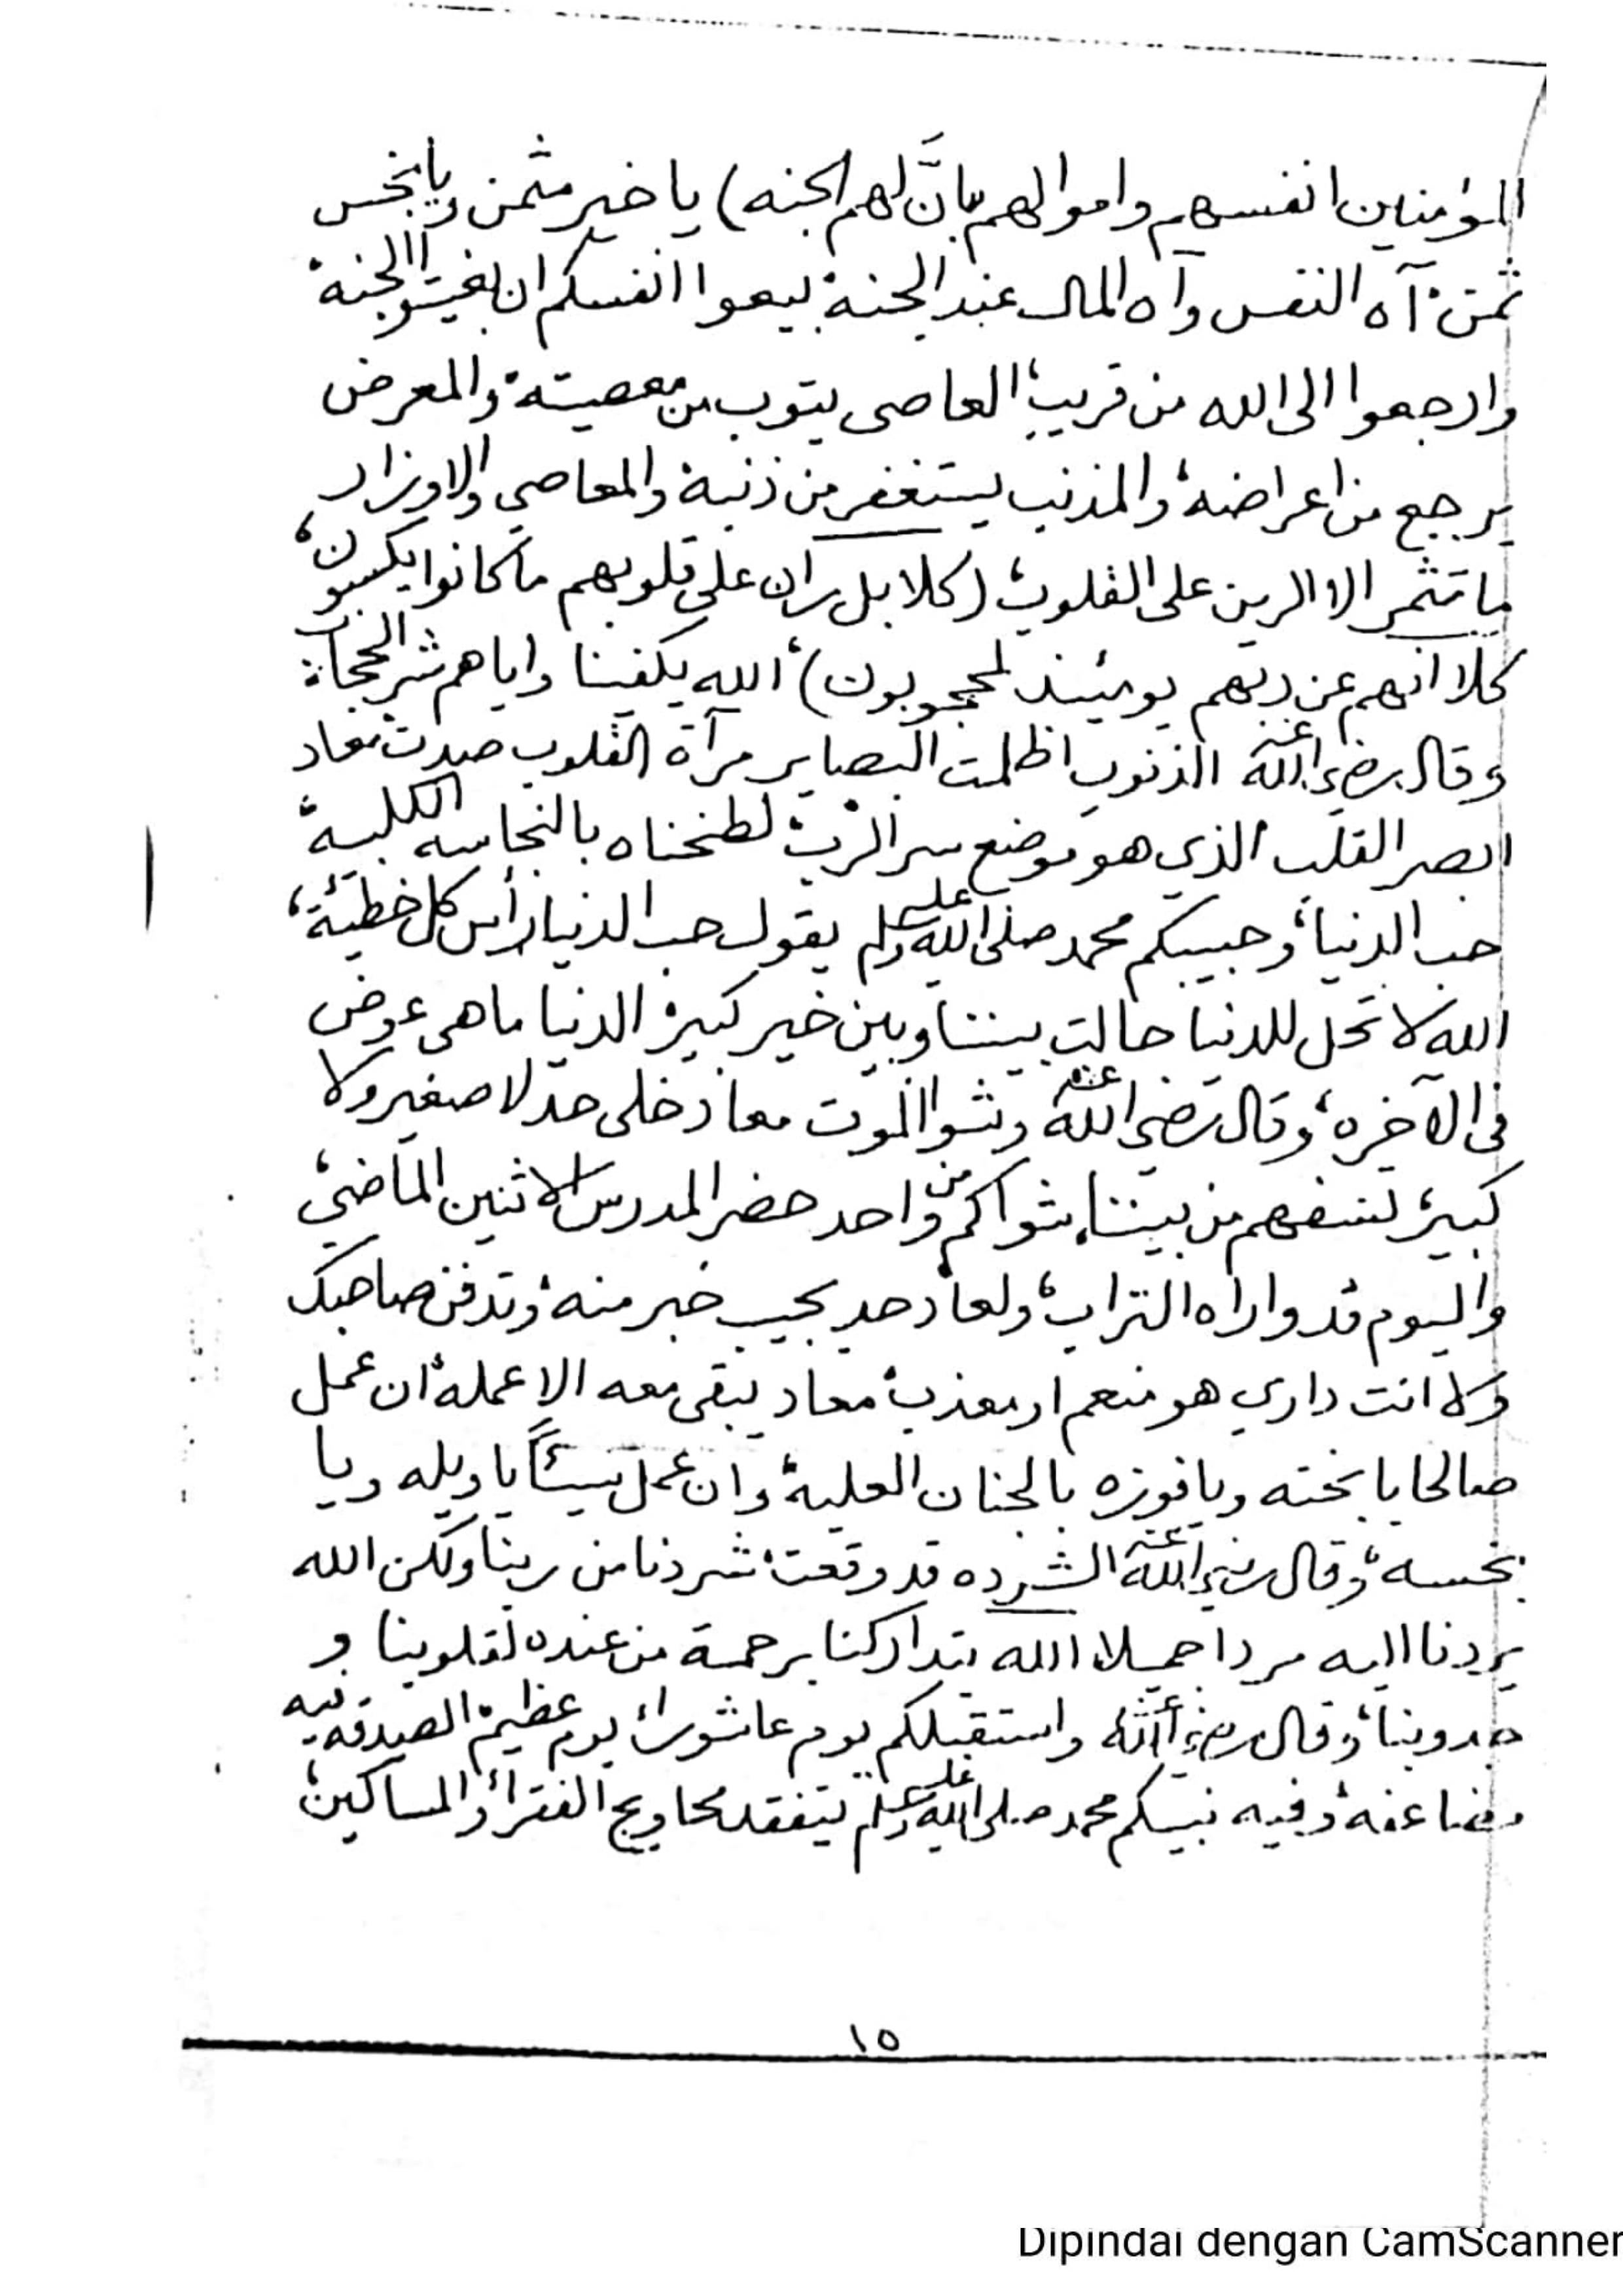 المؤمنين انفسهم واموالهم بانَّ لهم الجنه) يا خير مثمن ويابخس
ثمن، آه النفس وآه المال عند الجنة، بيعوا انفسكم ان بغيتوا الجنة،
وارجعوا الى الله من قريب، العاصى يتوب من معصيته، والمعرض
يرجع من اعراضه، والمذنب يستغفر من ذنبه والمعاصي والاوزار
ما تثمر الا الرين على القلوب، (كلا بل ران على قلوبهم ما كانوا يكسبون،
كلا انهم عن ربهم يومئيذ لمحجوبون)، الله يكفينا واياهم شر الحجاب،
وقال رضي الله عنه الذنوب اظلمت البصاير مرآة القلوب صدت، معاد
ابصر القلب الذي هو موضع سر الرب، لطخناه بالنجاسه الكلبية،
حب الدنيا، وحبيبكم محمد صلى الله عليه وسلم يقول حب الدنيا رأس كل خطيئة،
الله لا تحل للدنيا حالت بيننا وبين خير كبير، الدنيا ماهي عوض
في الآخره، وقال رضي الله عنه وشوا الموت معاد خلى حد لا صغير ولا
كبير، لنسفهم من بيننا، شواكم من واحد حضر المدرس الاثنين الماضي،
واليوم قد واراه التراب، ولعاد حد يجيب خبر منه، وتدفن صاحبك
ولا انت داري هو منعم او معذب، معاد يبقى معه الا عمله، ان عمل
صالحا يا بخته ويا فوزه بالجنان العلية، وان عمل سيئاً يا ويله ويا
بخسه، وقال رضي الله عنه الشرده قد وقعت، شردنا من ربنا ولكن الله
يردنا اليه مردا جميلا الله يتداركنا برحمة من عنده لقلوبنا و
جدوبنا، وقال رضي الله عنه واستقبلكم يوم عاشوراء يوم عظيم، الصدقه فيه
مضاعفه، وفيه نبيكم محمد صلى الله عليه وسلم يتفقد محاويج الفقراء والمساكين،
١٥
Dipindai dengan CamScanner